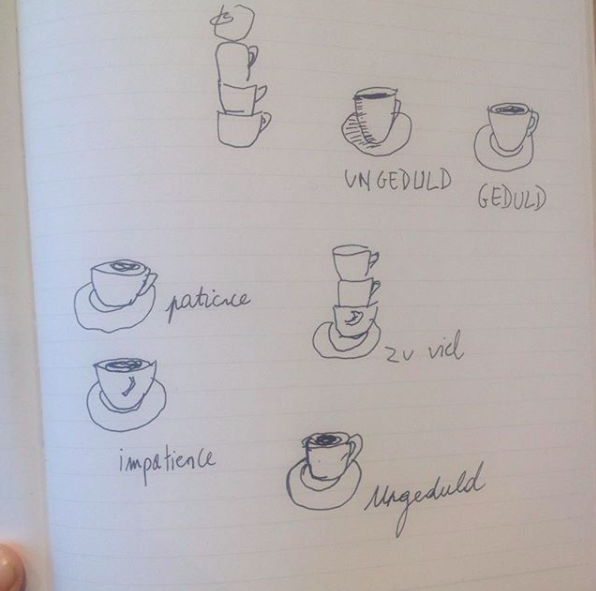 UNGEDULD
GEDULD
patience
zu viel
impatience
Ungeduld